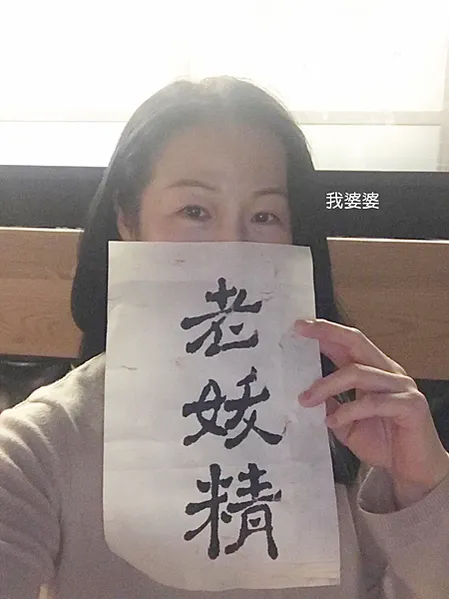 我婆婆
老妖精